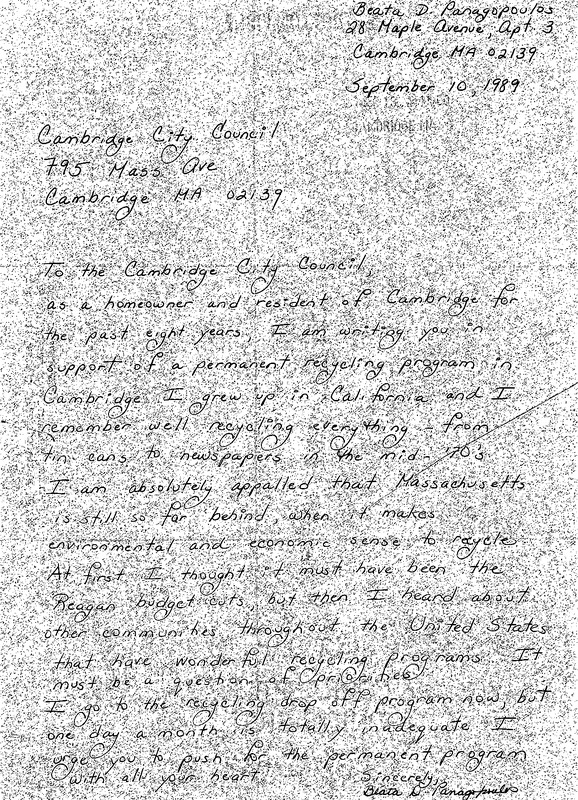 Beata D. Panagopoulos
28 Maple Avenue, Apt. 3
Cambridge MA 02139
September 10, 1989
CAMBRIDGE MA
Cambridge City Council
795 Mass Ave
Cambridge MA 02139
To the Cambridge City Council,
as a homeowner and resident of Cambridge for
the past eight years, I am writing you in
support of a permanent recycling program in
Cambridge. I grew up in California and I
remember well recycling everything - from
tin cans to newspapers in the mid-'70s
I am absolutely appalled that Massachusetts
is still so far behind, when it makes
environmental and economic sense to recycle.
At first I thought it must have been the
Reagan budget cuts, but then I heard about
other communities throughout the United States
that have wonderful recycling programs. It
must be a question of priorities.
I go to the recycling drop off program now, but
one day a month is totally inadequate. I
urge you to push for the permanent program
with all your heart.
Sincerely,
Beata D. Panagopoulos